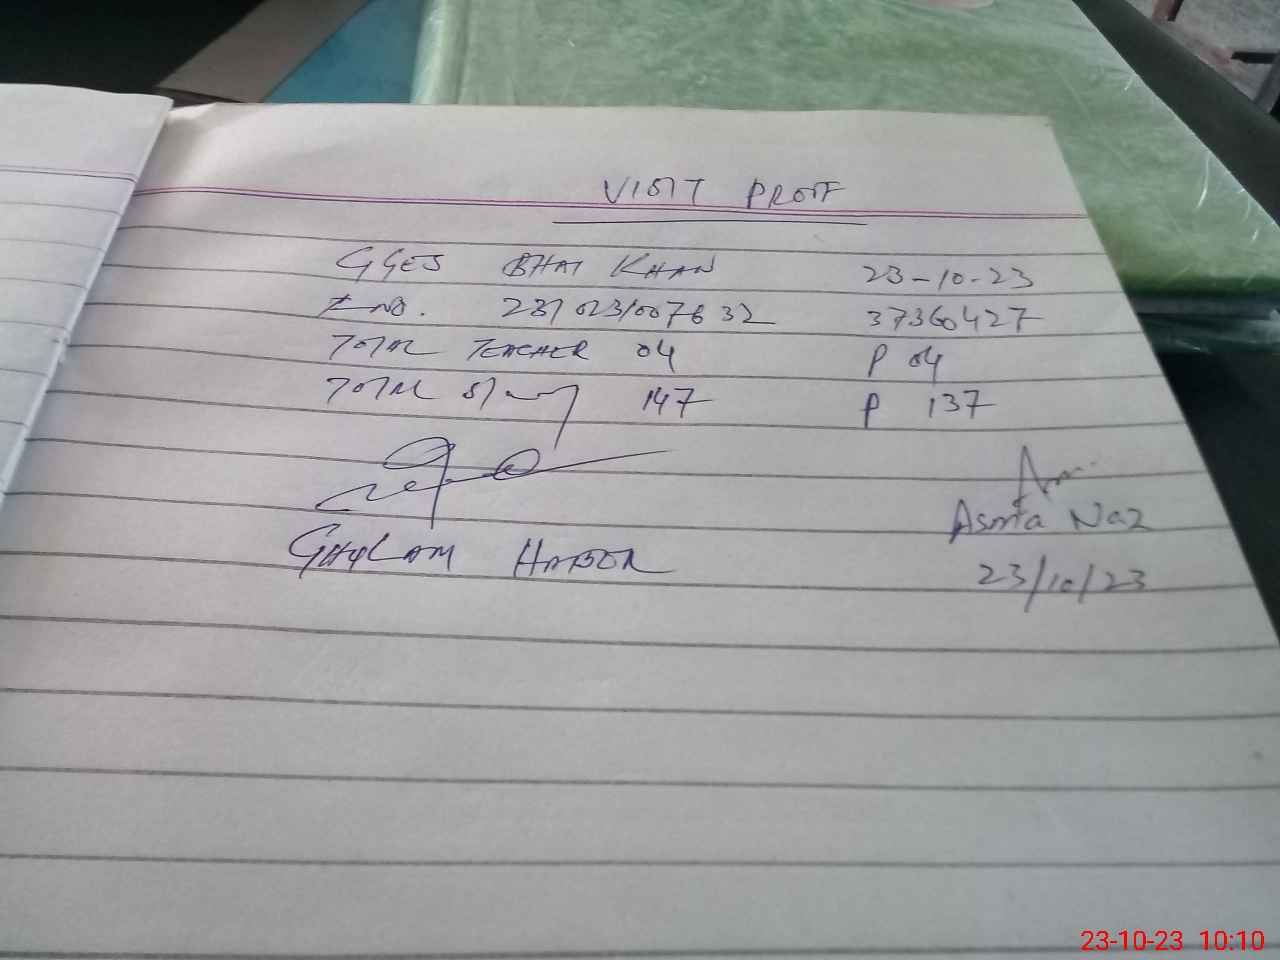 VISIT PROF
GGES BHAI KHAN 23-10-23
NO. 37360427
TOTAL TEACHER 04 P 04
TOTAL 147 P 137
GHULAM
Asma Naz
23/10/23
23-10-23 10:10